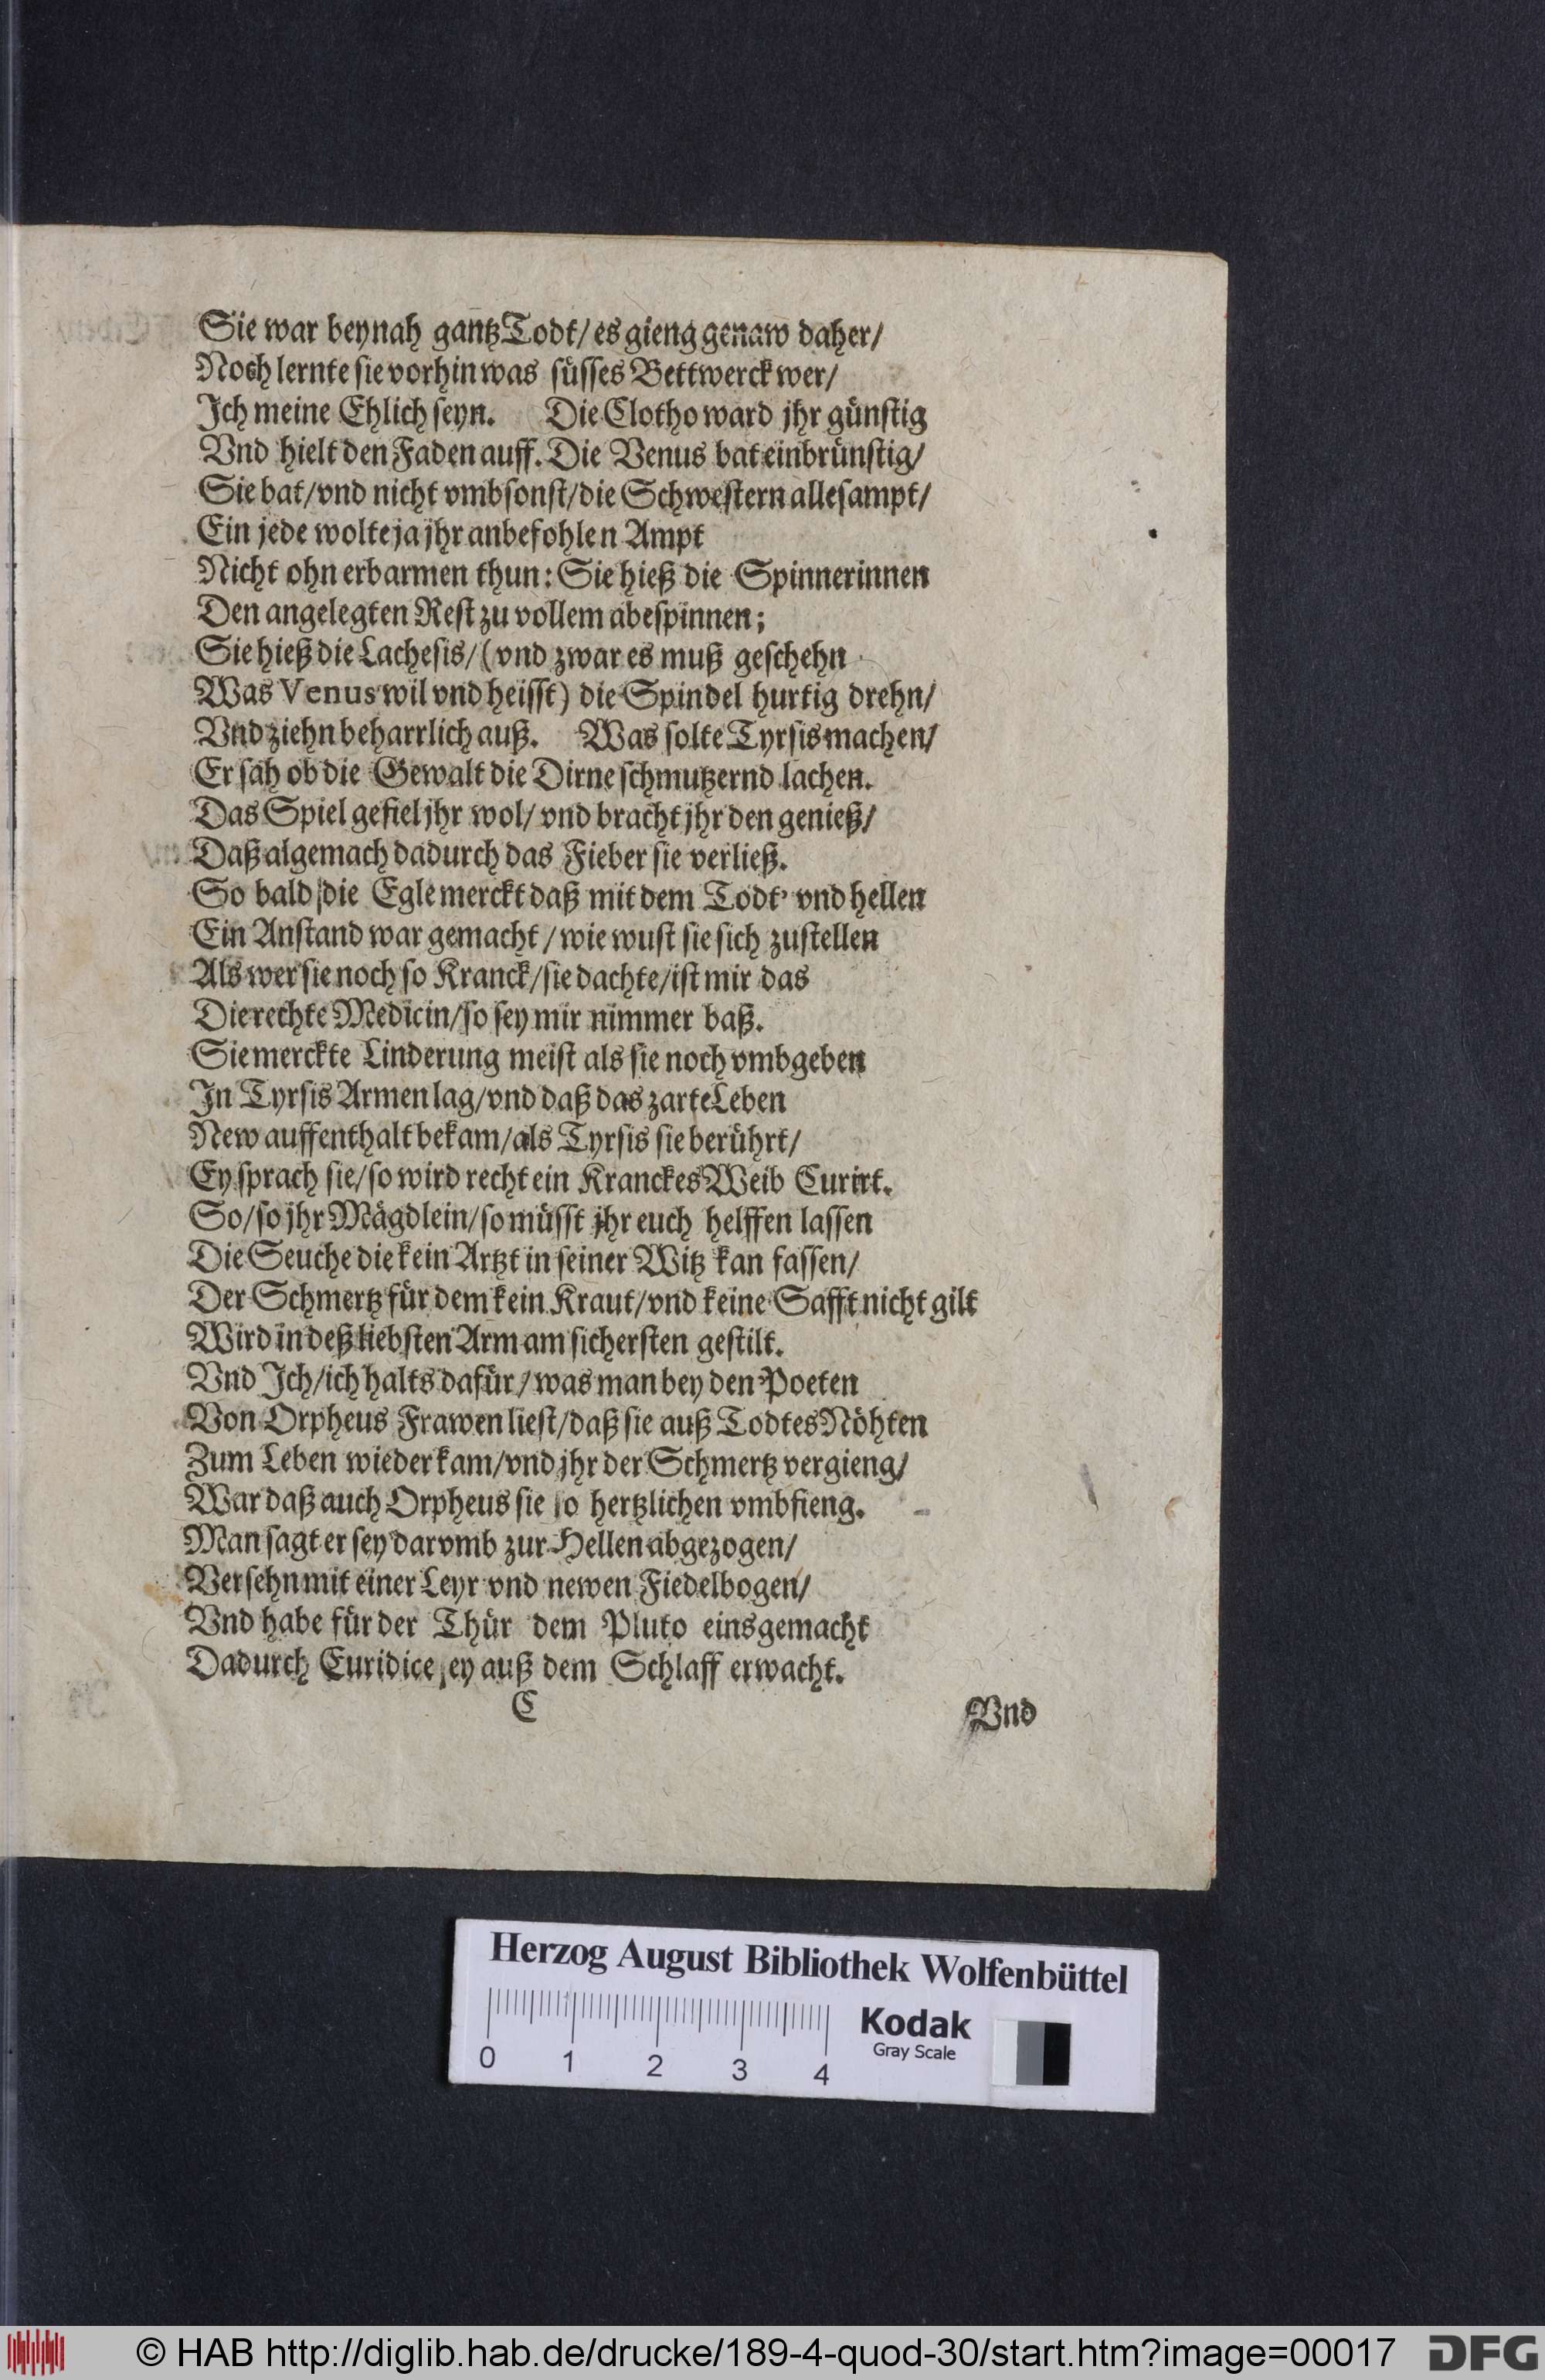 Sie war beynah gantz Todt/ es gieng genaw daher/
Noch lernte sie vorhin was süsses Bettwerck wer/
Ich meine Ehlich seyn. Die Clotho ward jhr günstig
Vnd hielt den Faden auff. Die Venus bat einbrünstig/
Sie bat/ vnd nicht vmbsonst/ die Schwestern allesampt/
Ein jede wolte ja jhr anbefohlen Ampt
Nicht ohn erbarmen thun: Sie hieß die Spinnerinnen
Den angelegten Rest zu vollem abespinnen;
Sie hieß die Lachesis/ (vnd zwar es muß geschehn
Was Venus wil vnd heisst) die Spindel hurtig drehn/
Vnd ziehn beharrlich auß. Was solte Tyrsis machen/
Er sah ob die Gewalt die Dirne schmutzernd lachen.
Das Spiel gefiel jhr wol/ vnd bracht jhr den genieß/
Daß algemach dadurch das Fieber sie verließ.
So bald die Egle merckt daß mit dem Todt' vnd hellen
Ein Anstand war gemacht/ wie wust sie sich zustellen
Als wer sie noch so Kranck/ sie dachte/ ist mir das
Die rechte Medicin/ so sey mir nimmer baß.
Sie merckte Linderung meist als sie noch vmbgeben
In Tyrsis Armen lag/ vnd daß das zarte Leben
New auffenthalt bekam/ als Tyrsis sie berührt/
Ey sprach sie/ so wird recht ein Kranckes Weib Curirt.
So/ so jhr Mägdlein/ so müsst jhr euch helffen lassen
Die Seuche die kein Artzt in seiner Witz kan fassen/
Der Schmertz für dem kein Kraut/ vnd keine Safft nicht gilt
Wird in deß liebsten Arm am sichersten gestilt.
Vnd Ich/ ich halts dafür/ was man bey den Poeten
Von Orpheus Frawen liest/ daß sie auß Todtes Nöhten
Zum Leben wieder kam/ vnd jhr der Schmertz vergieng/
War daß auch Orpheus sie so hertzlichen vmbfieng.
Man sagt er sey darvmb zur Hellen abgezogen/
Versehn mit einer Leyr vnd newen Fiedelbogen/
Vnd habe für der Thür dem Pluto eins gemacht
Dadurch Euridice sey auß dem Schlaff erwacht.
C
Vnd
Herzog August Bibliothek Wolfenbüttel
0 1 2 3 4
Kodak
Gray Scale
© HAB http://diglib.hab.de/drucke/189-4-quod-30/start.htm?image=00017
DFG